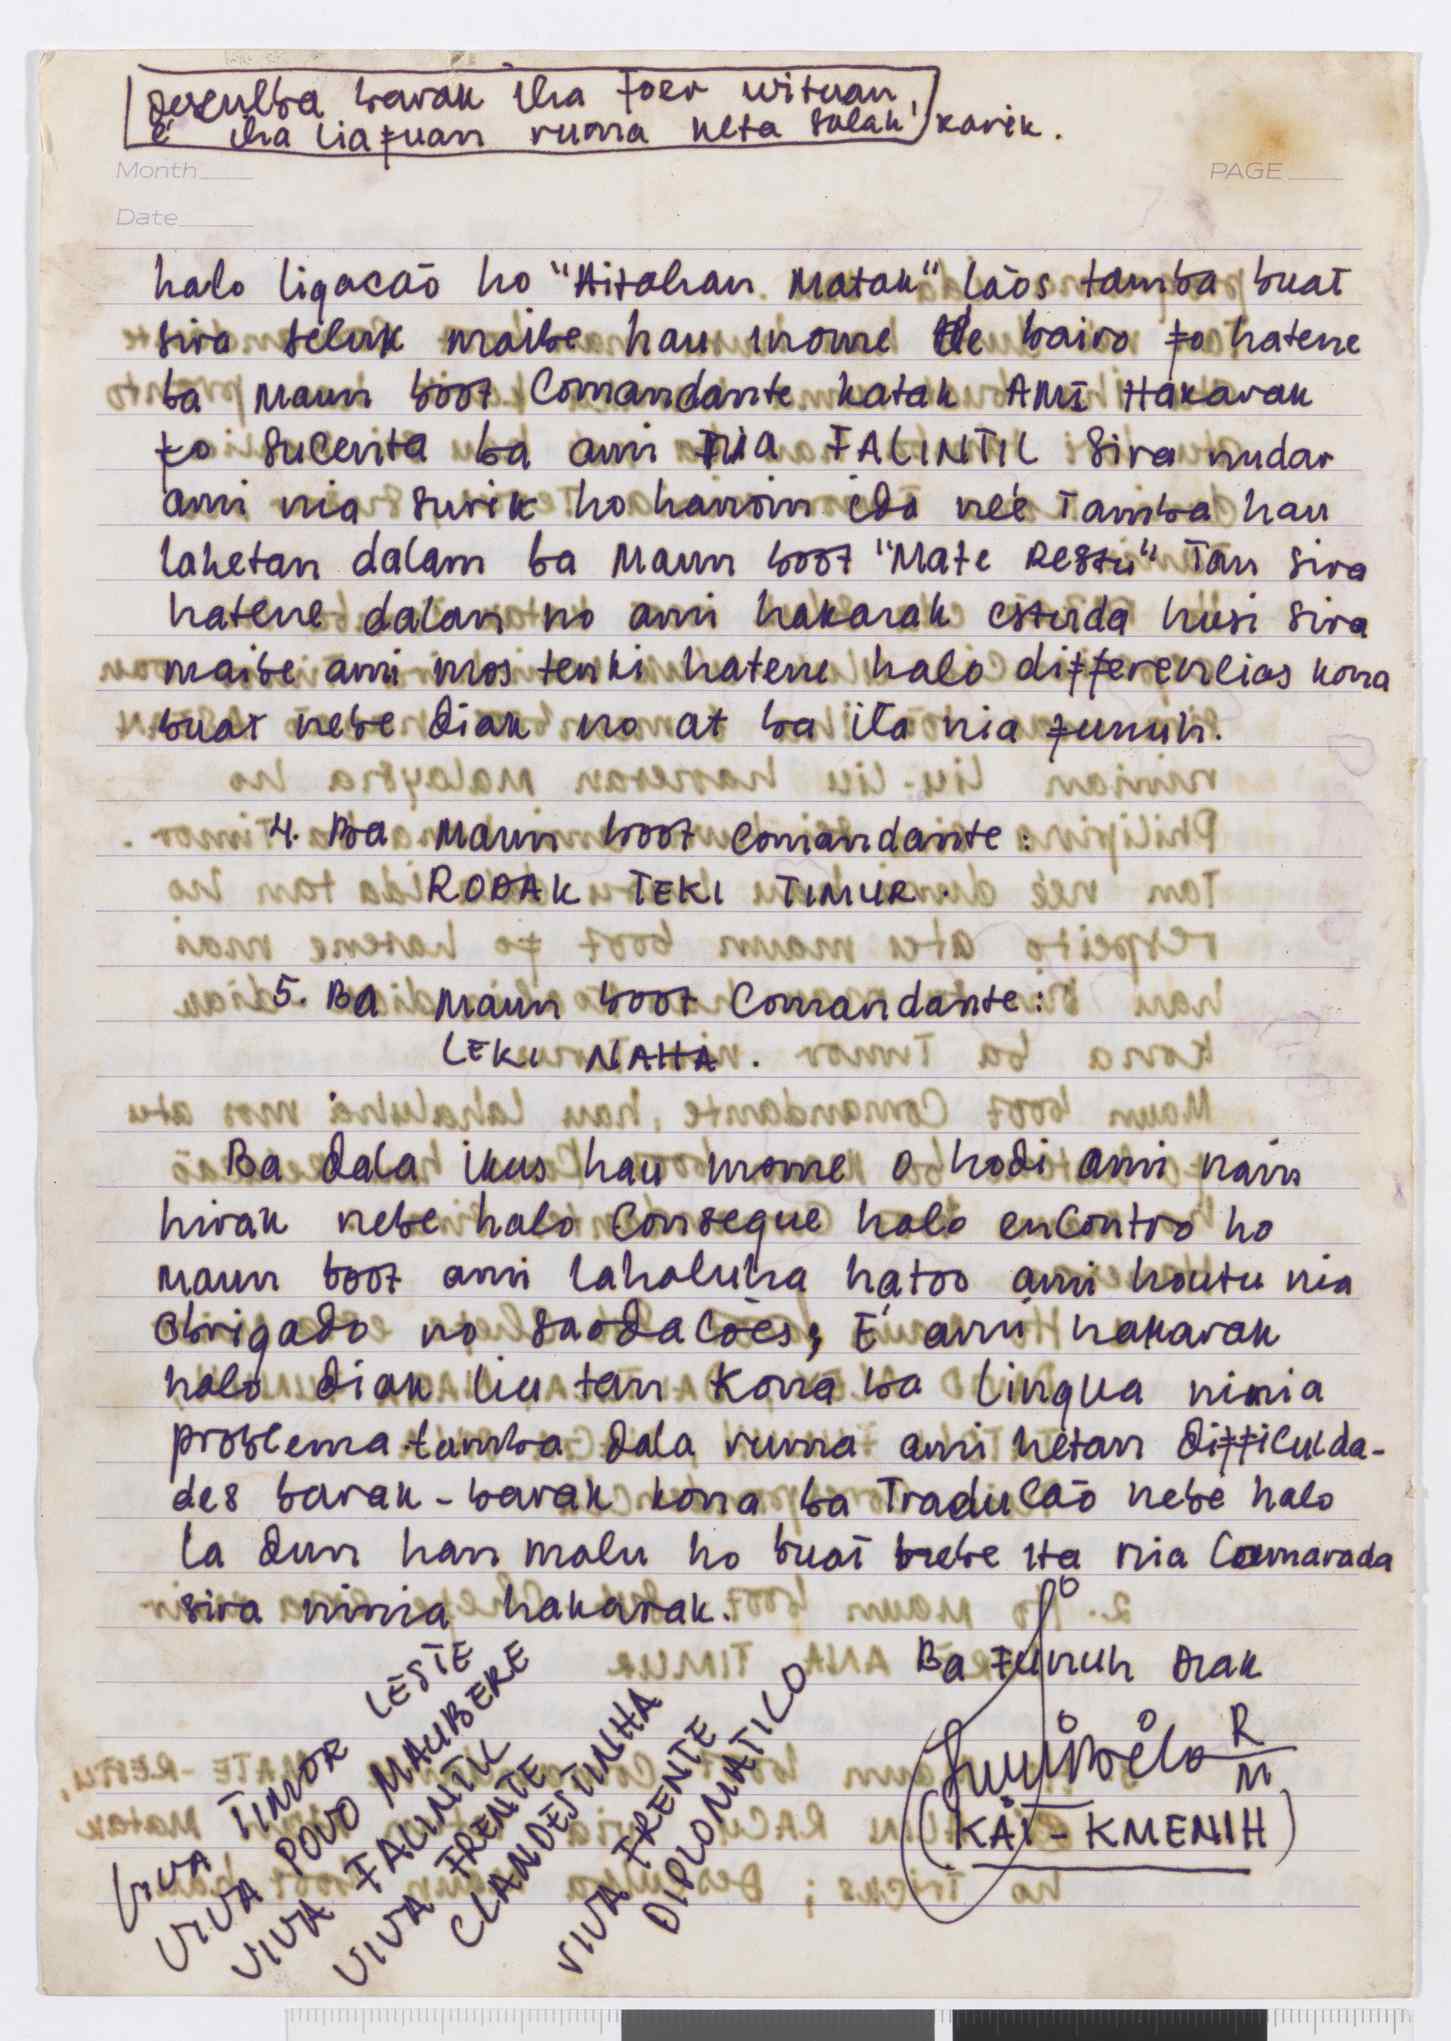 Desculba barak iha foer uituan,
é iha liafuan ruma keta salah karik.
Month
PAGE
Date
halo ligacaō ho "Aitahan Matak" láos tamba buat
sira seluk maibe hau nome de bairo fo hatene
ba Maun boot Comandante katak AMI Hakarak
fo sucenta ba ami nia FALINTIL sira nudar
ami nia surik ho hanoin ida neé Tamba hau
lahetan dalam ba Maun boot "Mate Restu" Tan sira
hatene dalan no ami hakarak estuda husi sira
maibe ami mos tenki hatene halo differencias kona
buat nebe diak no at ba ita nia funuh.
4. Ba Maun boot Comandante:
RODAK TEKI TIMUR.
5. Ba Maun boot Comandante:
LEKI NAHA.
Ba dala ikus hau nome o hodi ami nain
hirak nebe halo Consegue halo enContro ho
Maun boot ami lahaluha hatoo ami houtu nia
Obrigado no SaodaCões, É ami hakarak
halo diak liu tan Kona ba Lingua ninia
problema tamba dala ruma ami hetan diffiCulda-
des barak-barak kona ba TraduCão nebe halo
la dun han malu ho buat nebe ita nia Camarada
sira ninia hakarak.
Ba Funuh Nak
R/M
(KAI-KMENIH)
VIVA TIMOR LESTE
VIVA POVO MAUBERE
VIVA FALINTIL
VIVA FRENTE
CLANDESTINHA
VIVA FRENTE
DIPLOMATICO